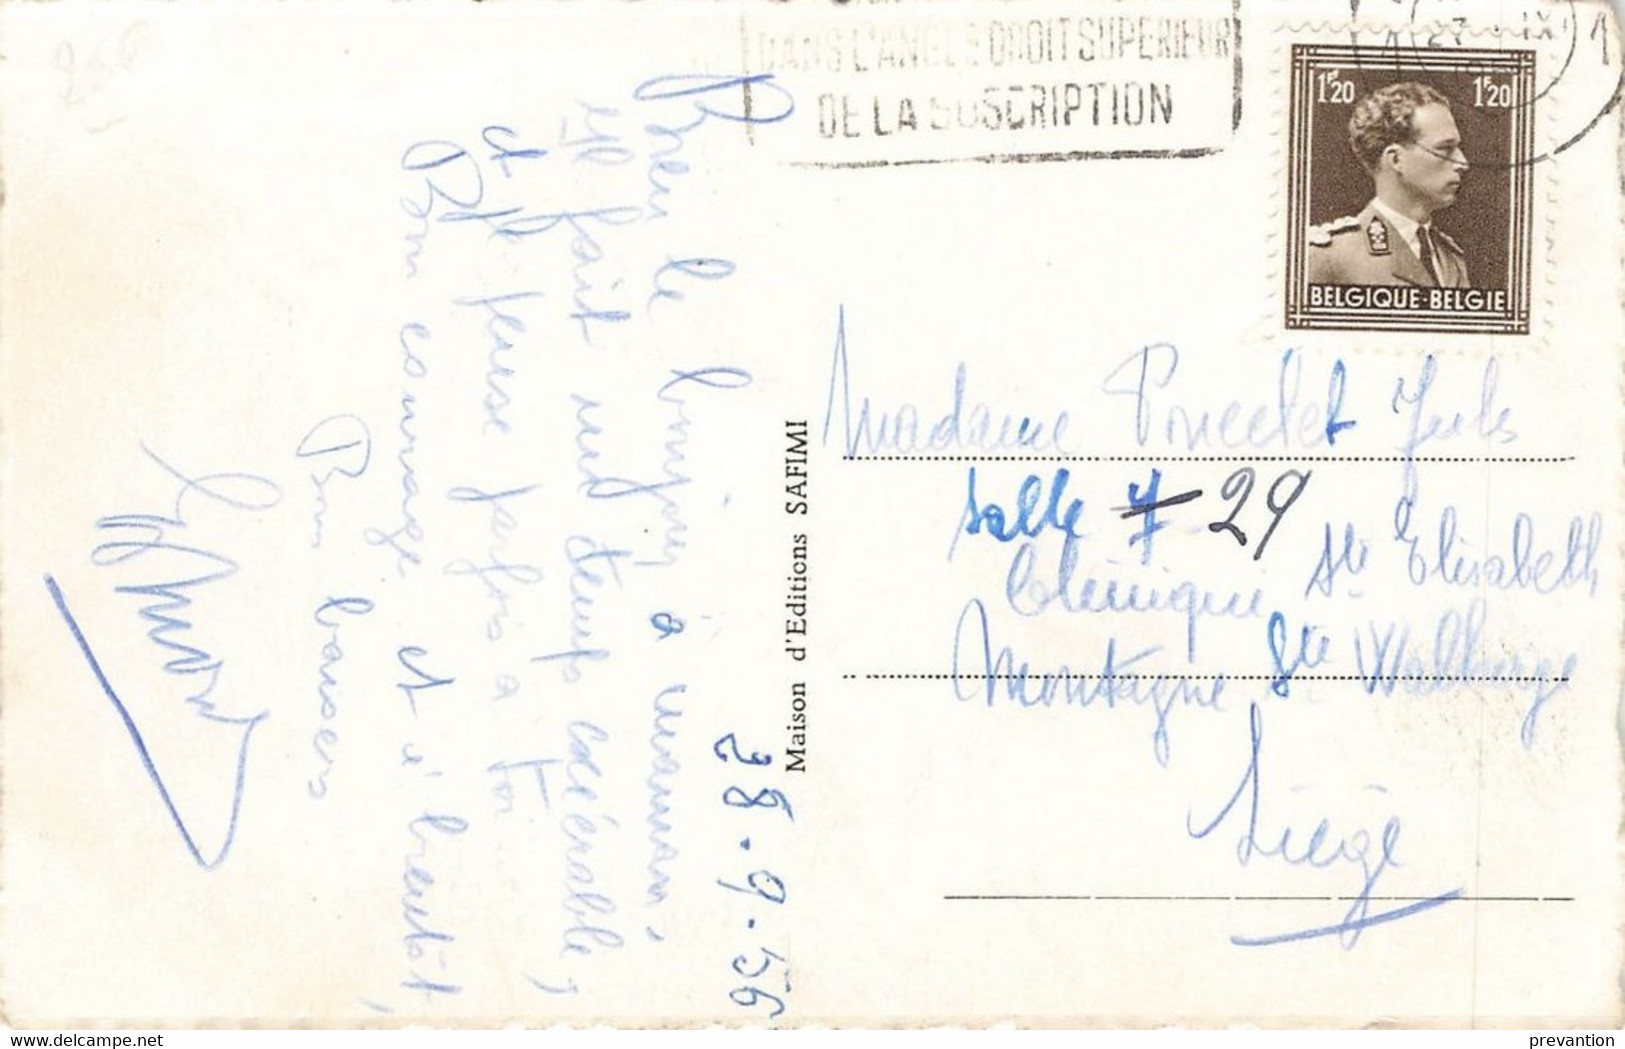 DANS L'ANGLE DROIT SUPERIEUR
DE LA SUSCRIPTION
1F20 1F20
BELGIQUE-BELGIE
28-9-56
Bien le bonjour à maman,
il fait un temps exécrable,
et je pense parfois à toi
Bon courage et à bientôt,
Bon baisers
Maison d'Editions SAFIMI
Madame Poncelet Jules
Salle 7 29
Clinique Ste Elisabeth
Montagne Ste Walburge
Liège
delcampe.net
prevantion